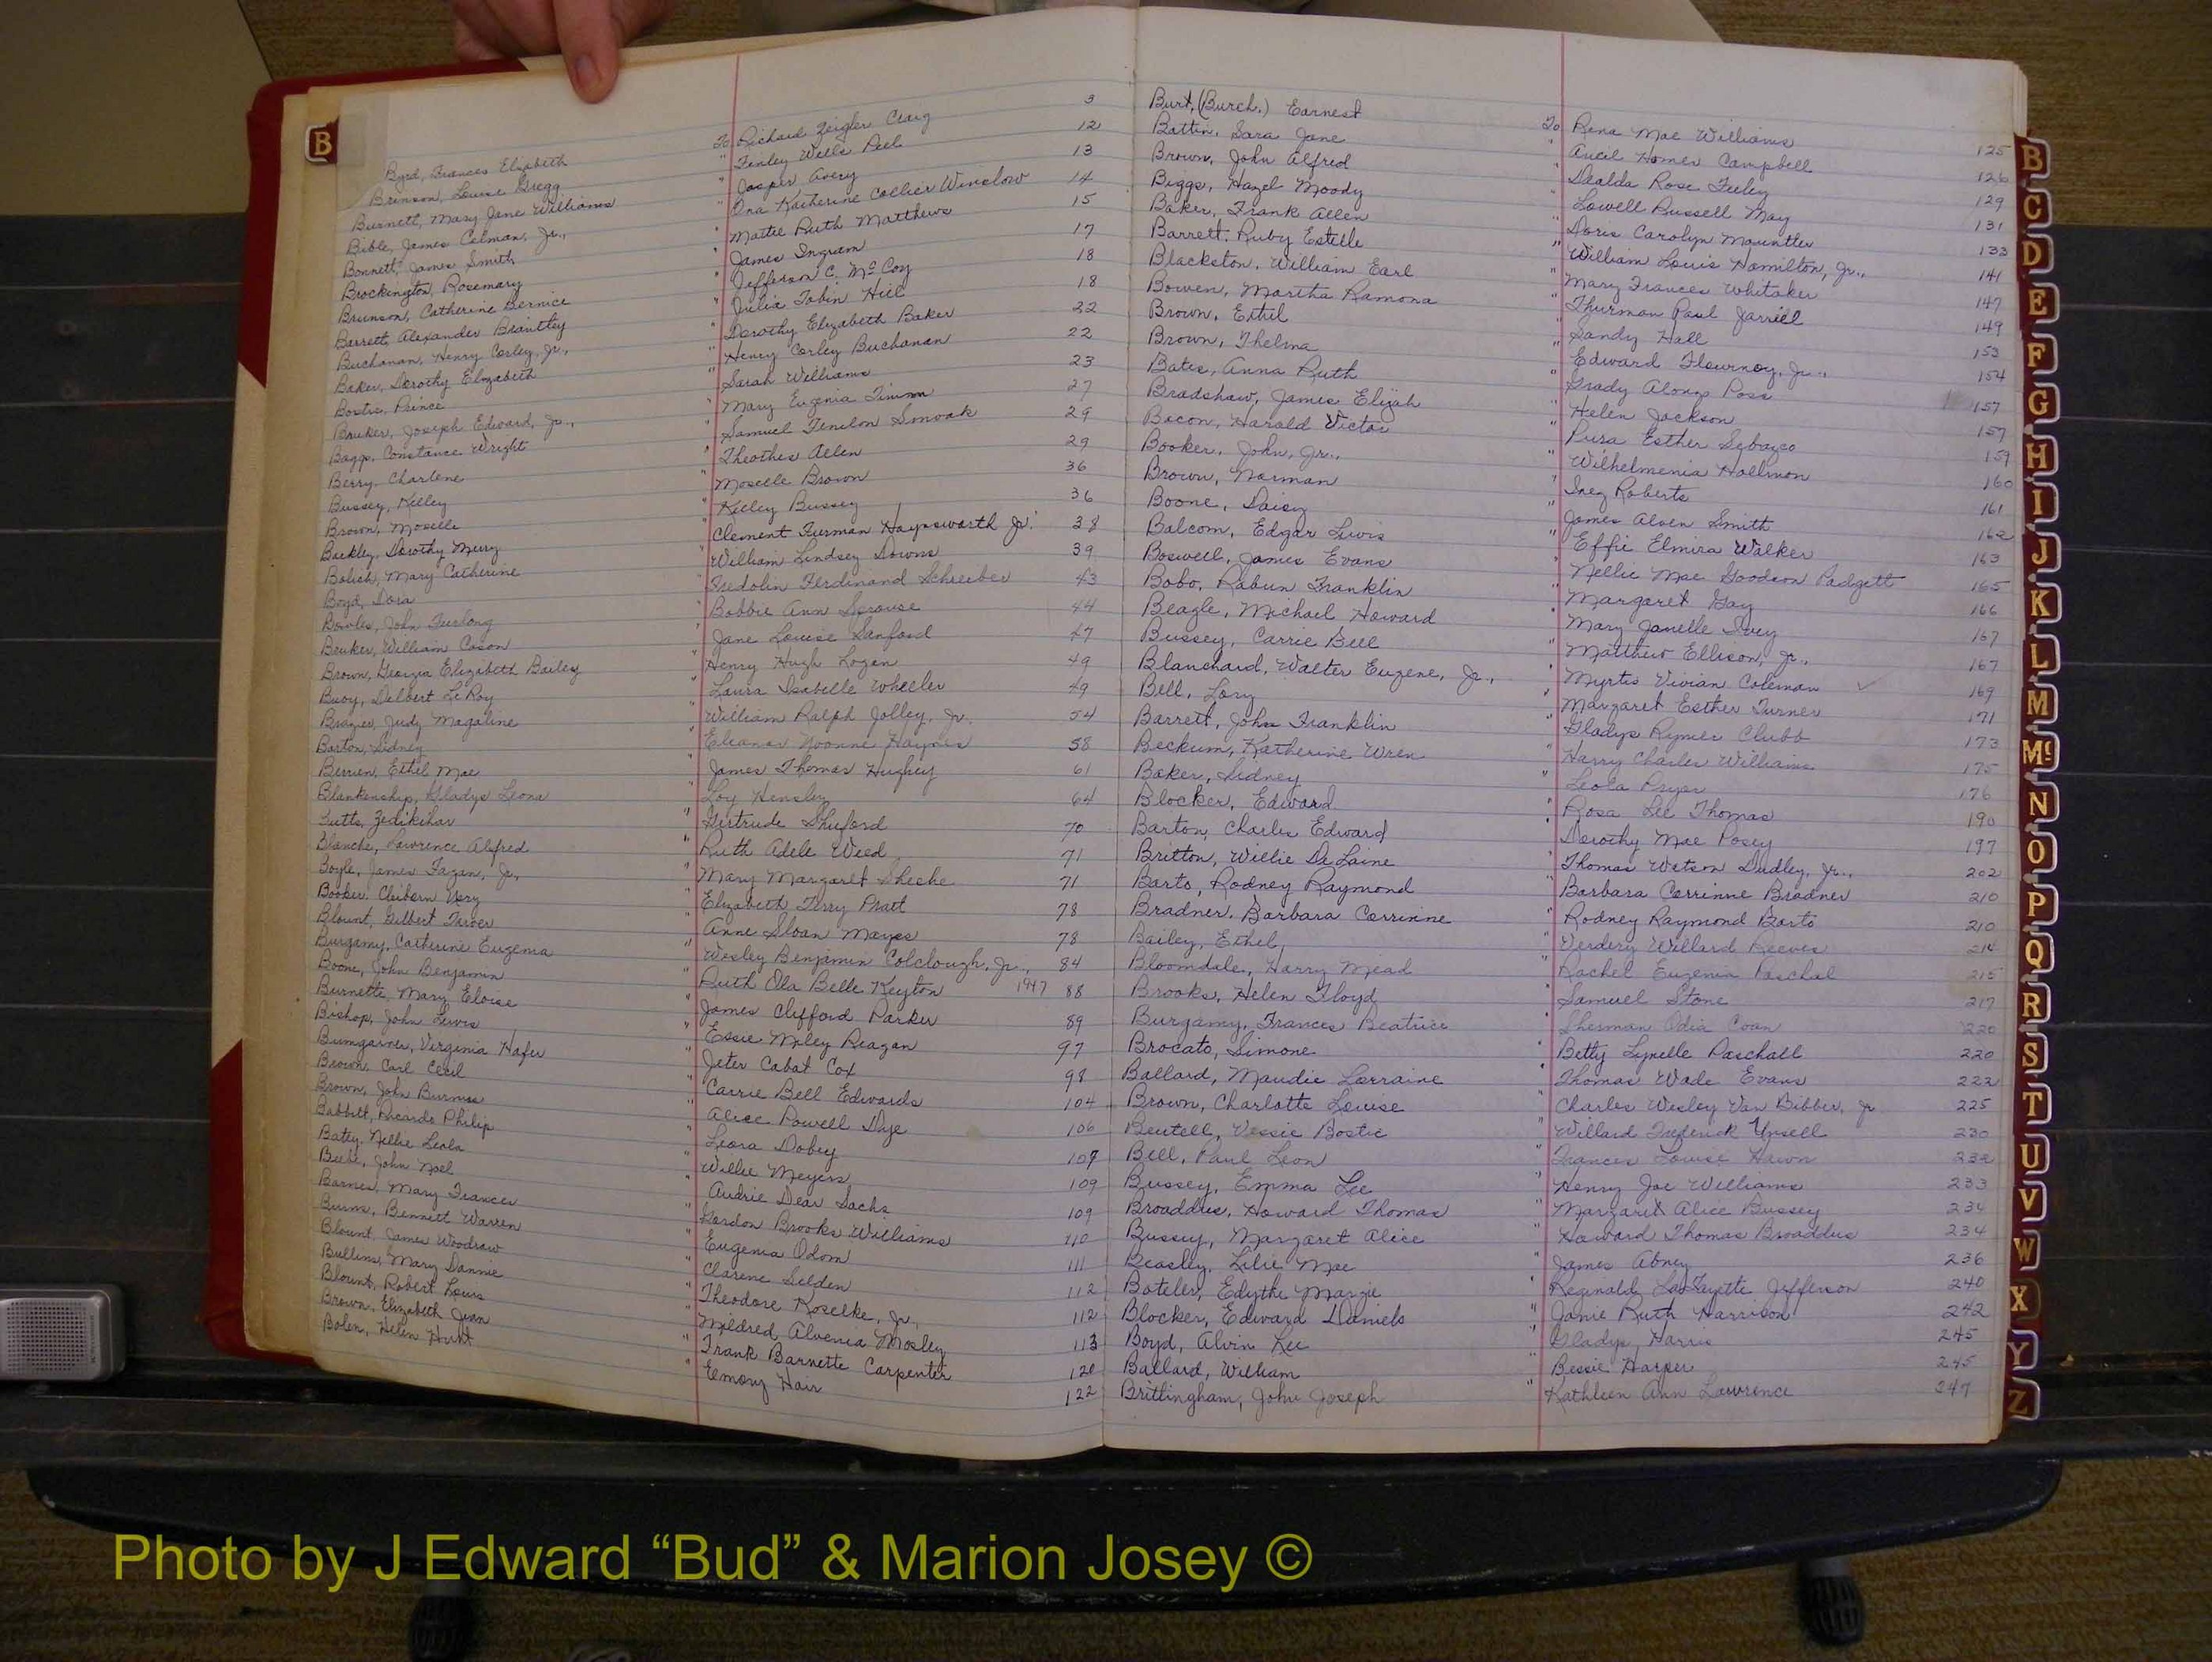 B
Byrd, Frances Elizabeth To Richard Zeigler Craig 3
Brinson, Louise Gregg " Finley Wells Peel 12
Burnett, Mary Jane Williams " Jasper Avery 13
Bible, James Colman, Jr., " Ona Katherine Collier Winslow 14
Bonnett, James Smith " Mattie Ruth Matthews 15
Brockington, Rosemary " James Ingram 17
Brunson, Catherine Bernice " Jefferson C. McCoy 18
Barrett, Alexander Brantley " Julia Tobin Hill 18
Buchanan, Henry Corley, Jr., " Dorothy Elizabeth Baker 22
Baker, Dorothy Elizabeth " Henry Corley Buchanan 22
Bostic, Prince " Sarah Williams 23
Bruker, Joseph Edward, Jr., " Mary Eugenia Timm 27
Baggs, Constance Wright " Samuel Fenelon Smoak 29
Berry, Charlene " Theothes Allen 29
Bussey, Kelley " Moselle Brown 36
Brown, Moselle " Kelley Bussey 36
Barkley, Dorothy Merry " Clement Furman Haynsworth Jr. 38
Bolick, Mary Catherine " William Lindsey Downs 39
Boyd, Dora " Fredolin Ferdinand Schreiber 43
Bowles, John Furlong " Bobbie Ann Sprouse 44
Bruker, William Cason " Jane Louise Sanford 47
Brown, Georgia Elizabeth Bailey " Henry Hugh Logan 49
Buoy, Delbert LeRoy " Laura Isabelle Wheeler 49
Brazier, Judy Magaline " William Ralph Jolley, Jr. 54
Barton, Sidney " Eleanor Yvonne Haynes 58
Berrien, Ethel Mae James Thomas Hughey 61
Blankenship, Gladys Leona " Loy Hensley 64
Butts, Zedikihar " Gertrude Shuford 70
Blanche, Lawrence Alfred " Ruth Adele Weed 71
Boyle, James Fagan, Jr., " Mary Margaret Sheehe 71
Booker, Cliborn Very " Elizabeth Terry Pratt 78
Blount, Gilbert Tarver " Anne Sloan Mayes 78
Burgamy, Catherine Eugenia " Wesley Benjamin Colclough, Jr., 84
Boone, John Benjamin " Ruth Ola Belle Keyton 1947 88
Burnette, Mary Eloise " James Clifford Parker 89
Bishop, John Lewis " Essie Miley Reagan 97
Bumgarner, Virginia Hafer " Jeter Cabat Cox 98
Brown, Carl Cecil " Carrie Bell Edwards 104
Brown, John Burness " Alice Powell Dye 106
Babbitt, Ricardo Philip " Leora Dobey 107
Batey, Nellie Leola " Willie Meyers 109
Beebe, John Noel " Audrie Dear Sachs 109
Barnes, Mary Frances " Gordon Brooks Williams 110
Burns, Bennett Warren " Eugenia Odom 111
Blount, James Woodrow " Clarene Selden 112
Bullins, Mary Dannie " Theodore Koselke, Jr., 112
Blount, Robert Louis " Mildred Alvenia Mosley 113
Brown, Elizabeth Jean " Frank Barnette Carpenter 120
Bolen, Helen Hunt " Emory Hair 122
Burt, (Burch.) Earnest To Rena Mae Williams 125
Battin, Sara Jane " Aucil Homer Campbell 126
Brown, John Alfred " Dealda Rose Feeley 129
Biggs, Hazel Moody " Lowell Russell May 131
Baker, Frank Allen " Doris Carolyn Mountler 133
Barrett, Ruby Estelle " William Louis Hamilton, Jr., 141
Blackston, William Earl " Mary Frances Whitaker 147
Bowen, Martha Ramona " Thurman Paul Jarriel 149
Brown, Ethel " Sandy Hall 153
Brown, Thelma " Edward Flournoy, Jr., 154
Bates, Anna Ruth " Grady Alonzo Poss 157
Bradshaw, James Elijah " Helen Jackson 157
Bacon, Harold Victor " Pura Esther Sebazco 159
Booker, John, Jr., " Wilhelmenia Hollmon 160
Brown, Norman " Inez Roberts 161
Boone, Daisy " James Alven Smith 162
Balcom, Edgar Lewis " Effie Elmira Walker 163
Boswell, James Evans " Nellie Mae Goodson Padgett 165
Bobo, Rabun Franklin " Margaret Gay 166
Beagle, Michael Howard " Mary Janelle Ivey 167
Bussey, Carrie Bell " Matthew Ellison, Jr., 167
Blanchard, Walter Eugene, Jr., " Myrtis Vivian Coleman ✓ 169
Bell, Lory " Margaret Esther Turner 171
Barrett, John Franklin " Gladys Rymer Clubb 173
Beckum, Katherine Wren " Harry Charles Williams 175
Baker, Sidney " Leola Pryor 176
Blocker, Edward " Rosa Lee Thomas 190
Barton, Charles Edward " Dorothy Mae Posey 197
Britton, Willie DeLaine " Thomas Watson Dudley, Jr., 202
Barto, Rodney Raymond " Barbara Corrinne Bradner 210
Bradner, Barbara Corrinne " Rodney Raymond Barto 210
Bailey, Ethel " Verdery Willard Reeves 214
Bloomdale, Harry Mead " Rachel Eugenia Paschal 215
Brooks, Helen Floyd " Samuel Stone 217
Burgamy, Frances Beatrice " Sherman Odia Coan 220
Brocato, Simone " Betty Lynelle Paschall 220
Ballard, Maudie Lorraine " Thomas Wade Evans 222
Brown, Charlotte Louise " Charles Wesley Van Bibber, Jr 225
Beutell, Vessie Bostic " Willard Frederick Unsell 230
Bell, Paul Leon " Frances Louise Hawn 232
Bussey, Emma Lee " Henry Joe Williams 233
Broaddus, Howard Thomas " Margaret Alice Bussey 234
Bussey, Margaret Alice " Howard Thomas Broaddus 234
Beasley, Lilie Mae " James Abney 236
Boteler, Edythe Margie " Reginald LaFayette Jefferson 240
Blocker, Edward Daniels " Janie Ruth Harrison 242
Boyd, Alvin Lee " Gladys Harris 245
Ballard, William " Bessie Harper 245
Brittingham, John Joseph " Kathleen Ann Lawrence 247
B
C
D
E
F
G
H
I
J
K
L
M
Mc
N
O
P
Q
R
S
T
U
V
W
X
Y
Z
Photo by J Edward “Bud” & Marion Josey ©